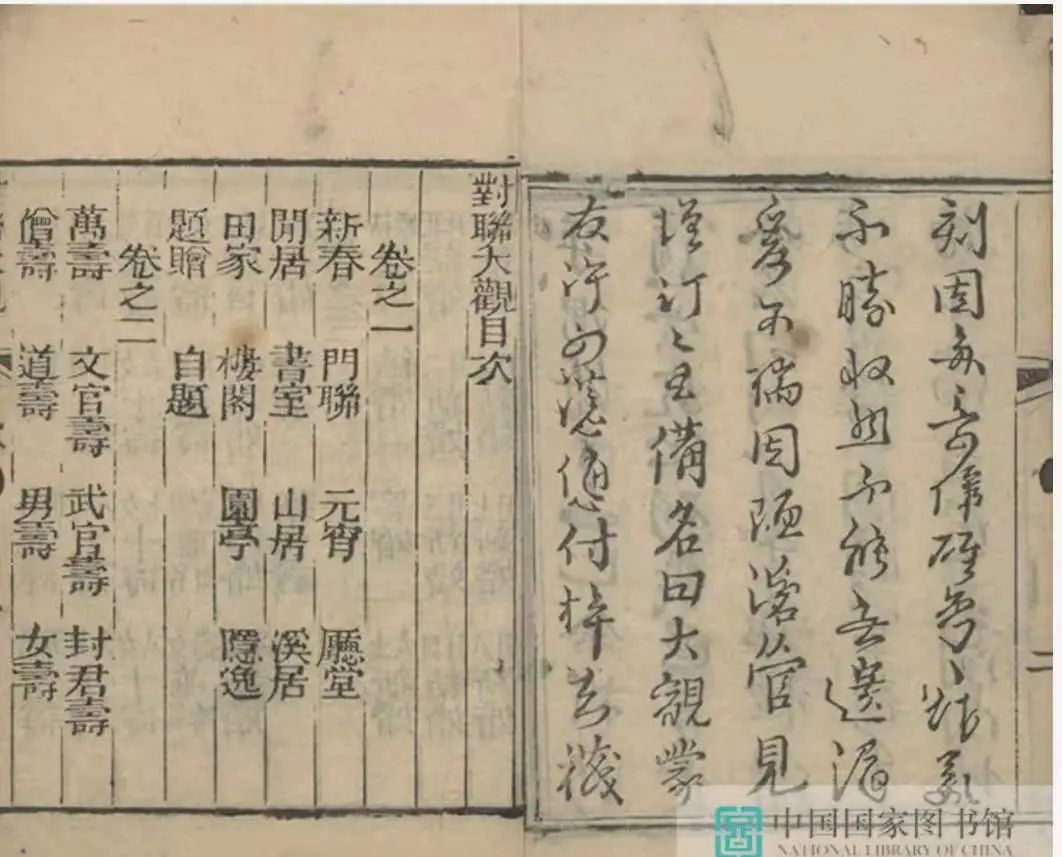 刻固
不勝收 不能無遺漏
爰不揣固陋 管見
增訂 備名曰大觀蒙
友許可慫慂付梓
二
對聯大觀目次
卷之一
新春 門聯 元宵 廳堂
閒居 書室 山居 溪居
田家 樓閣 園亭 隱逸
題贈 自題
卷之二
萬壽 文官壽 武官壽 封君壽
僧壽 道壽 男壽 女壽
中国国家图书馆
NATIONAL LIBRARY OF CHINA